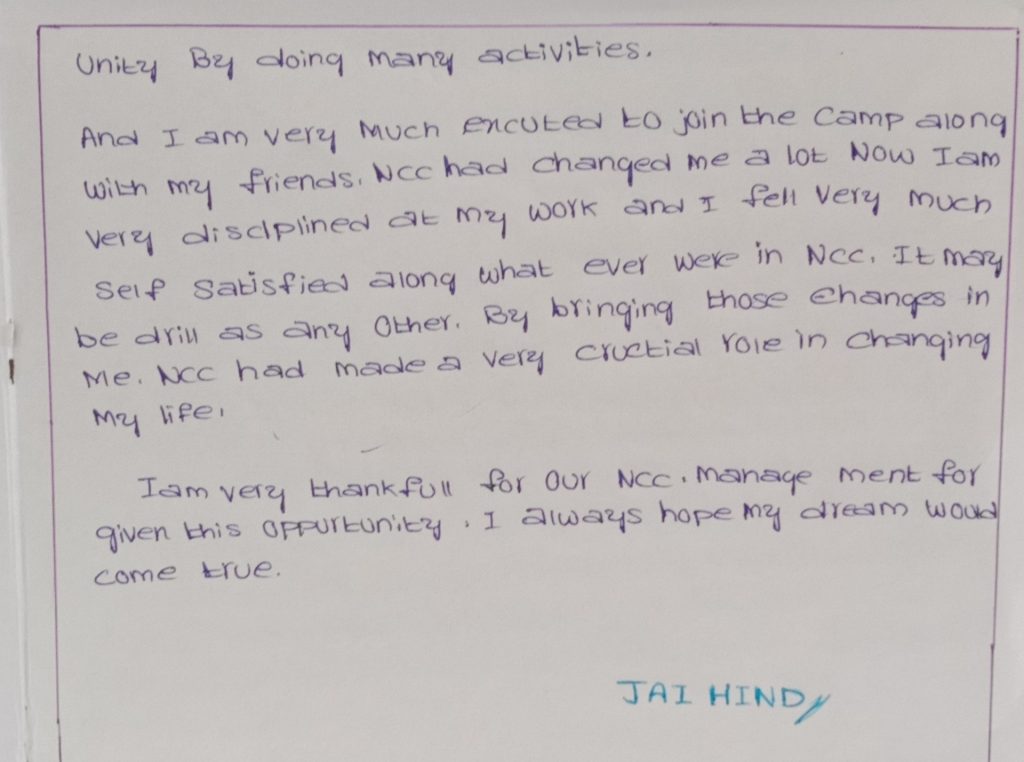 Unity By doing many activities.
And I am very Much excuted to join the Camp along
with my friends. NCC had changed me a lot Now I am
very disciplined at my work and I fell very much
Self Satisfied along what ever were in NCC. It may
be drill as any Other. By bringing those changes in
Me. NCC had made a very cructial role in changing
My life.
I am very thankfull for Our NCC. Manage ment for
given this oppurtunity. I always hope my dream would
come true.
JAI HIND